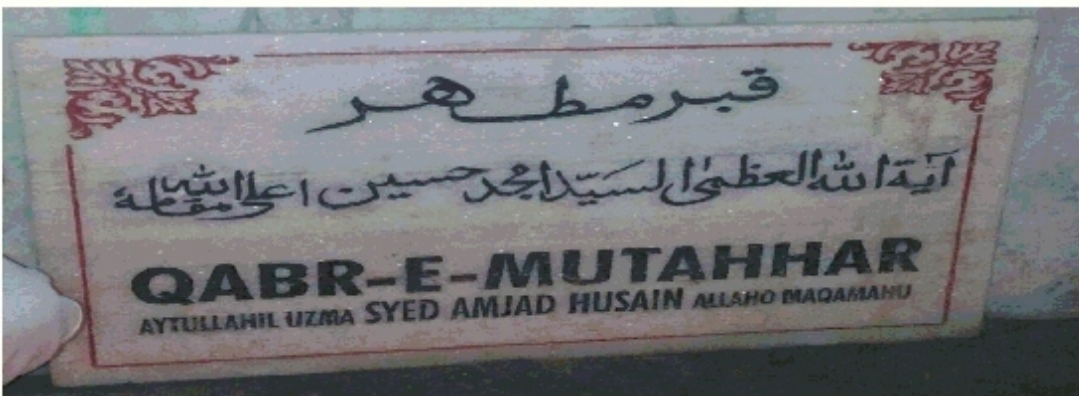 قبر مطهر
آية الله العظمیٰ السيّد امجد حسين اعلی الله مقامه
QABR-E-MUTAHHAR
AYTULLAHIL UZMA SYED AMJAD HUSAIN ALLAHO MAQAMAHU